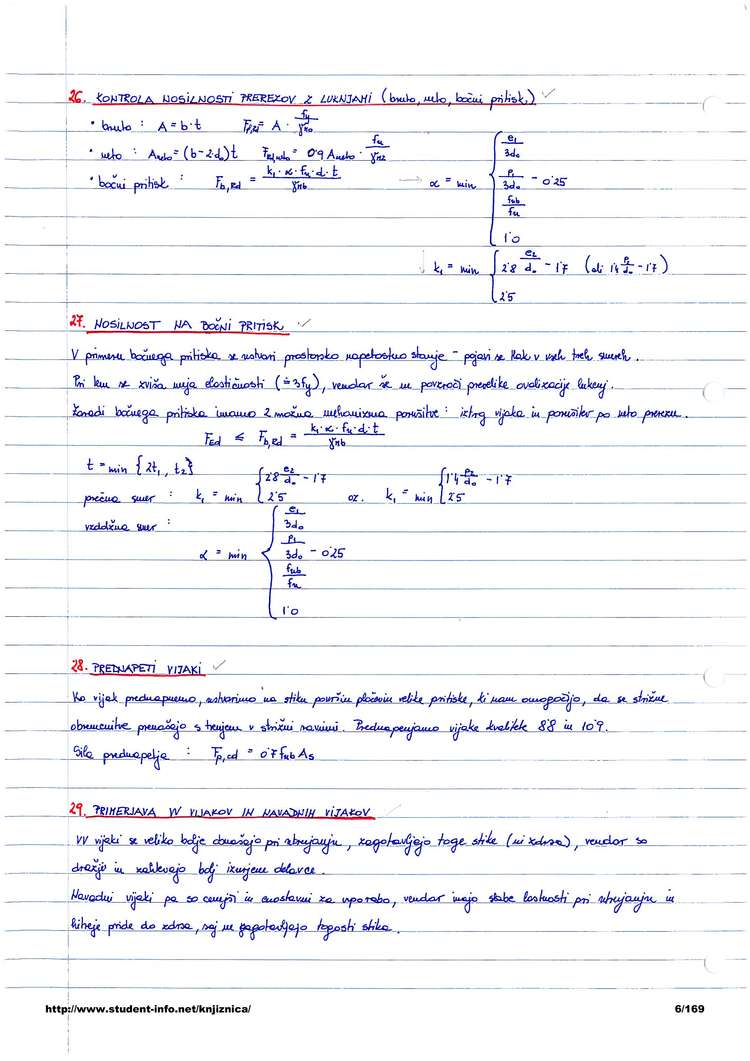 26. KONTROLA NOSILNOSTI PREREZOV Z LUKNJAMI (bruto, neto, bočni pritisk.) ✓
• bruto : A = b·t   F_t,Rd = A · fy/γM0
• neto : Aneto = (b-2·d₀)t   F_Rd,neto = 0'9 Aneto · fu/γM2
• bočni pritisk : F_b,Rd = k₁·α·fu·d·t/γMb → α = min { e₁/3d₀ ; p₁/3d₀ - 0'25 ; fub/fu ; 1'0
↓ k₁ = min { 2'8 e₂/d₀ - 1'7 (ali 1'4 p₂/d₀ - 1'7) ; 2'5
27. NOSILNOST NA BOČNI PRITISK ✓
V primeru bočnega pritiska se ustvari prostorsko napetostno stanje - pojavi se tlak v vseh treh smereh.
Pri tem se zviša meja elastičnosti (≐3fy), vendar še ne povzroči prevelike ovalizacije lukenj.
Zaradi bočnega pritiska imamo 2 možna mehanizma porušitve : iztrg vijaka in porušitev po neto prerezu.
F_Ed ≤ F_b,Rd = k₁·α·fu·d·t/γMb
t = min {2t₁, t₂}
prečna smer : k₁ = min { 2'8 e₂/d₀ - 1'7 ; 2'5   oz. k₁ = min { 1'4 p₂/d₀ - 1'7 ; 2'5
vzdolžna smer :
α = min { e₁/3d₀ ; p₁/3d₀ - 0'25 ; fub/fu ; 1'0
28. PREDNAPETI VIJAKI ✓
Ko vijak prednapnemo, ustvarimo na stiku površin pločevin velike pritiske, ki nam omogočijo, da se strižne
obremenitve prenašajo s trenjem v strižni ravnini. Prednapenjamo vijake kvalitete 8'8 in 10'9.
Sila prednapetja : F_p,cd = 0'7 fub As
29. PRIMERJAVA VV VIJAKOV IN NAVADNIH VIJAKOV
VV vijaki se veliko bolje obnašajo pri utrujanju, zagotavljajo toge stike (ni zdrsa), vendar so
dražji in zahtevajo bolj izurjene delavce.
Navadni vijaki pa so cenejši in enostavni za uporabo, vendar imajo slabe lastnosti pri utrujanju in
hitreje pride do zdrsa, saj ne zagotavljajo togosti stika.
http://www.student-info.net/knjiznica/   6/169